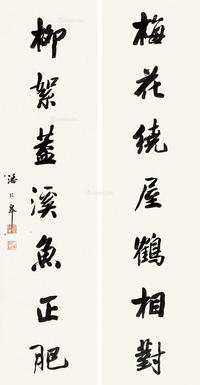 梅花繞屋鶴相對
柳絮蓋溪魚正肥
潘齡皋